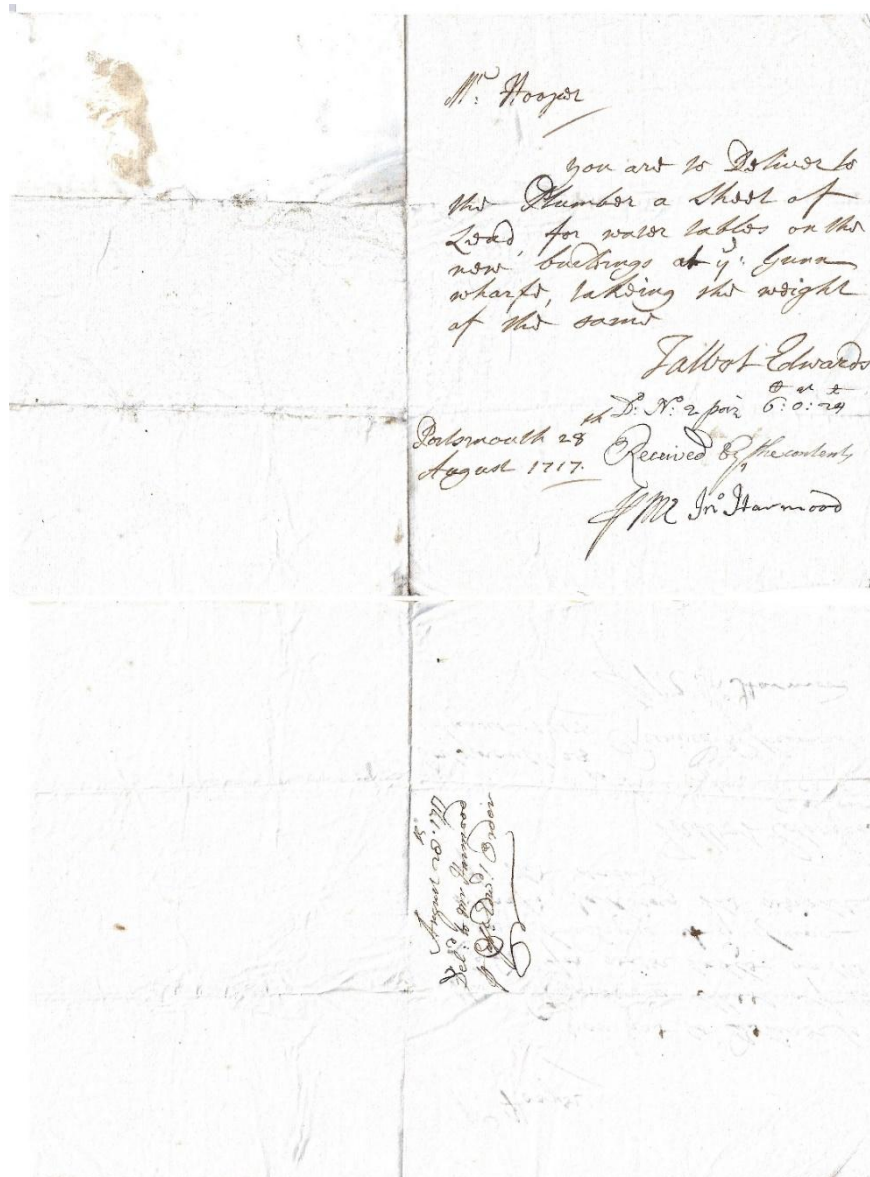 Mr. Hooper
you are to Deliver to
the Plumber a sheet of
Lead, for water tables on the
new buildings at ye: Gunn
wharfe, takeing the weight
of the same
Talbot Edwards
Do. No: 2 poiz 6: 0: 24
Portsmouth 28th
August 1717.
Received the contents
Jno Harmood
August 28th: 1717
Deld to Mr Harmood
Order